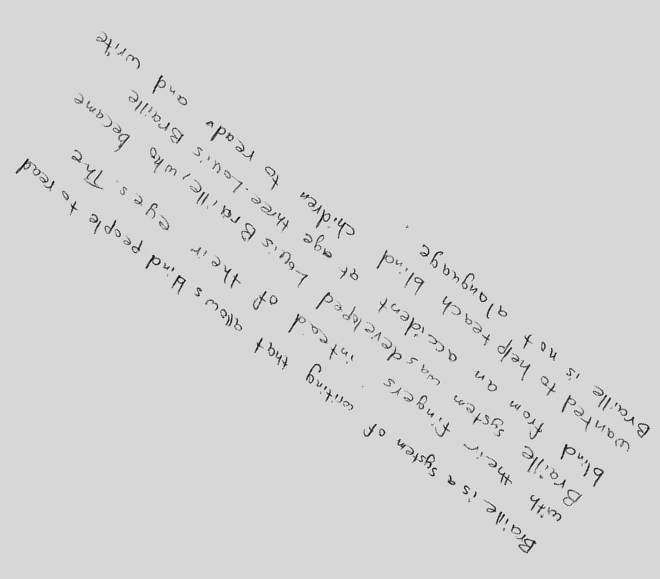 Braille is a system of writing that allows blind people to read
with their fingers intead of their eyes. The
Braille system was developed Louis Braille, who became
blind from an accident at age three. Louis Braille
wanted to help teach blind children to read and write
Braille is not a language.